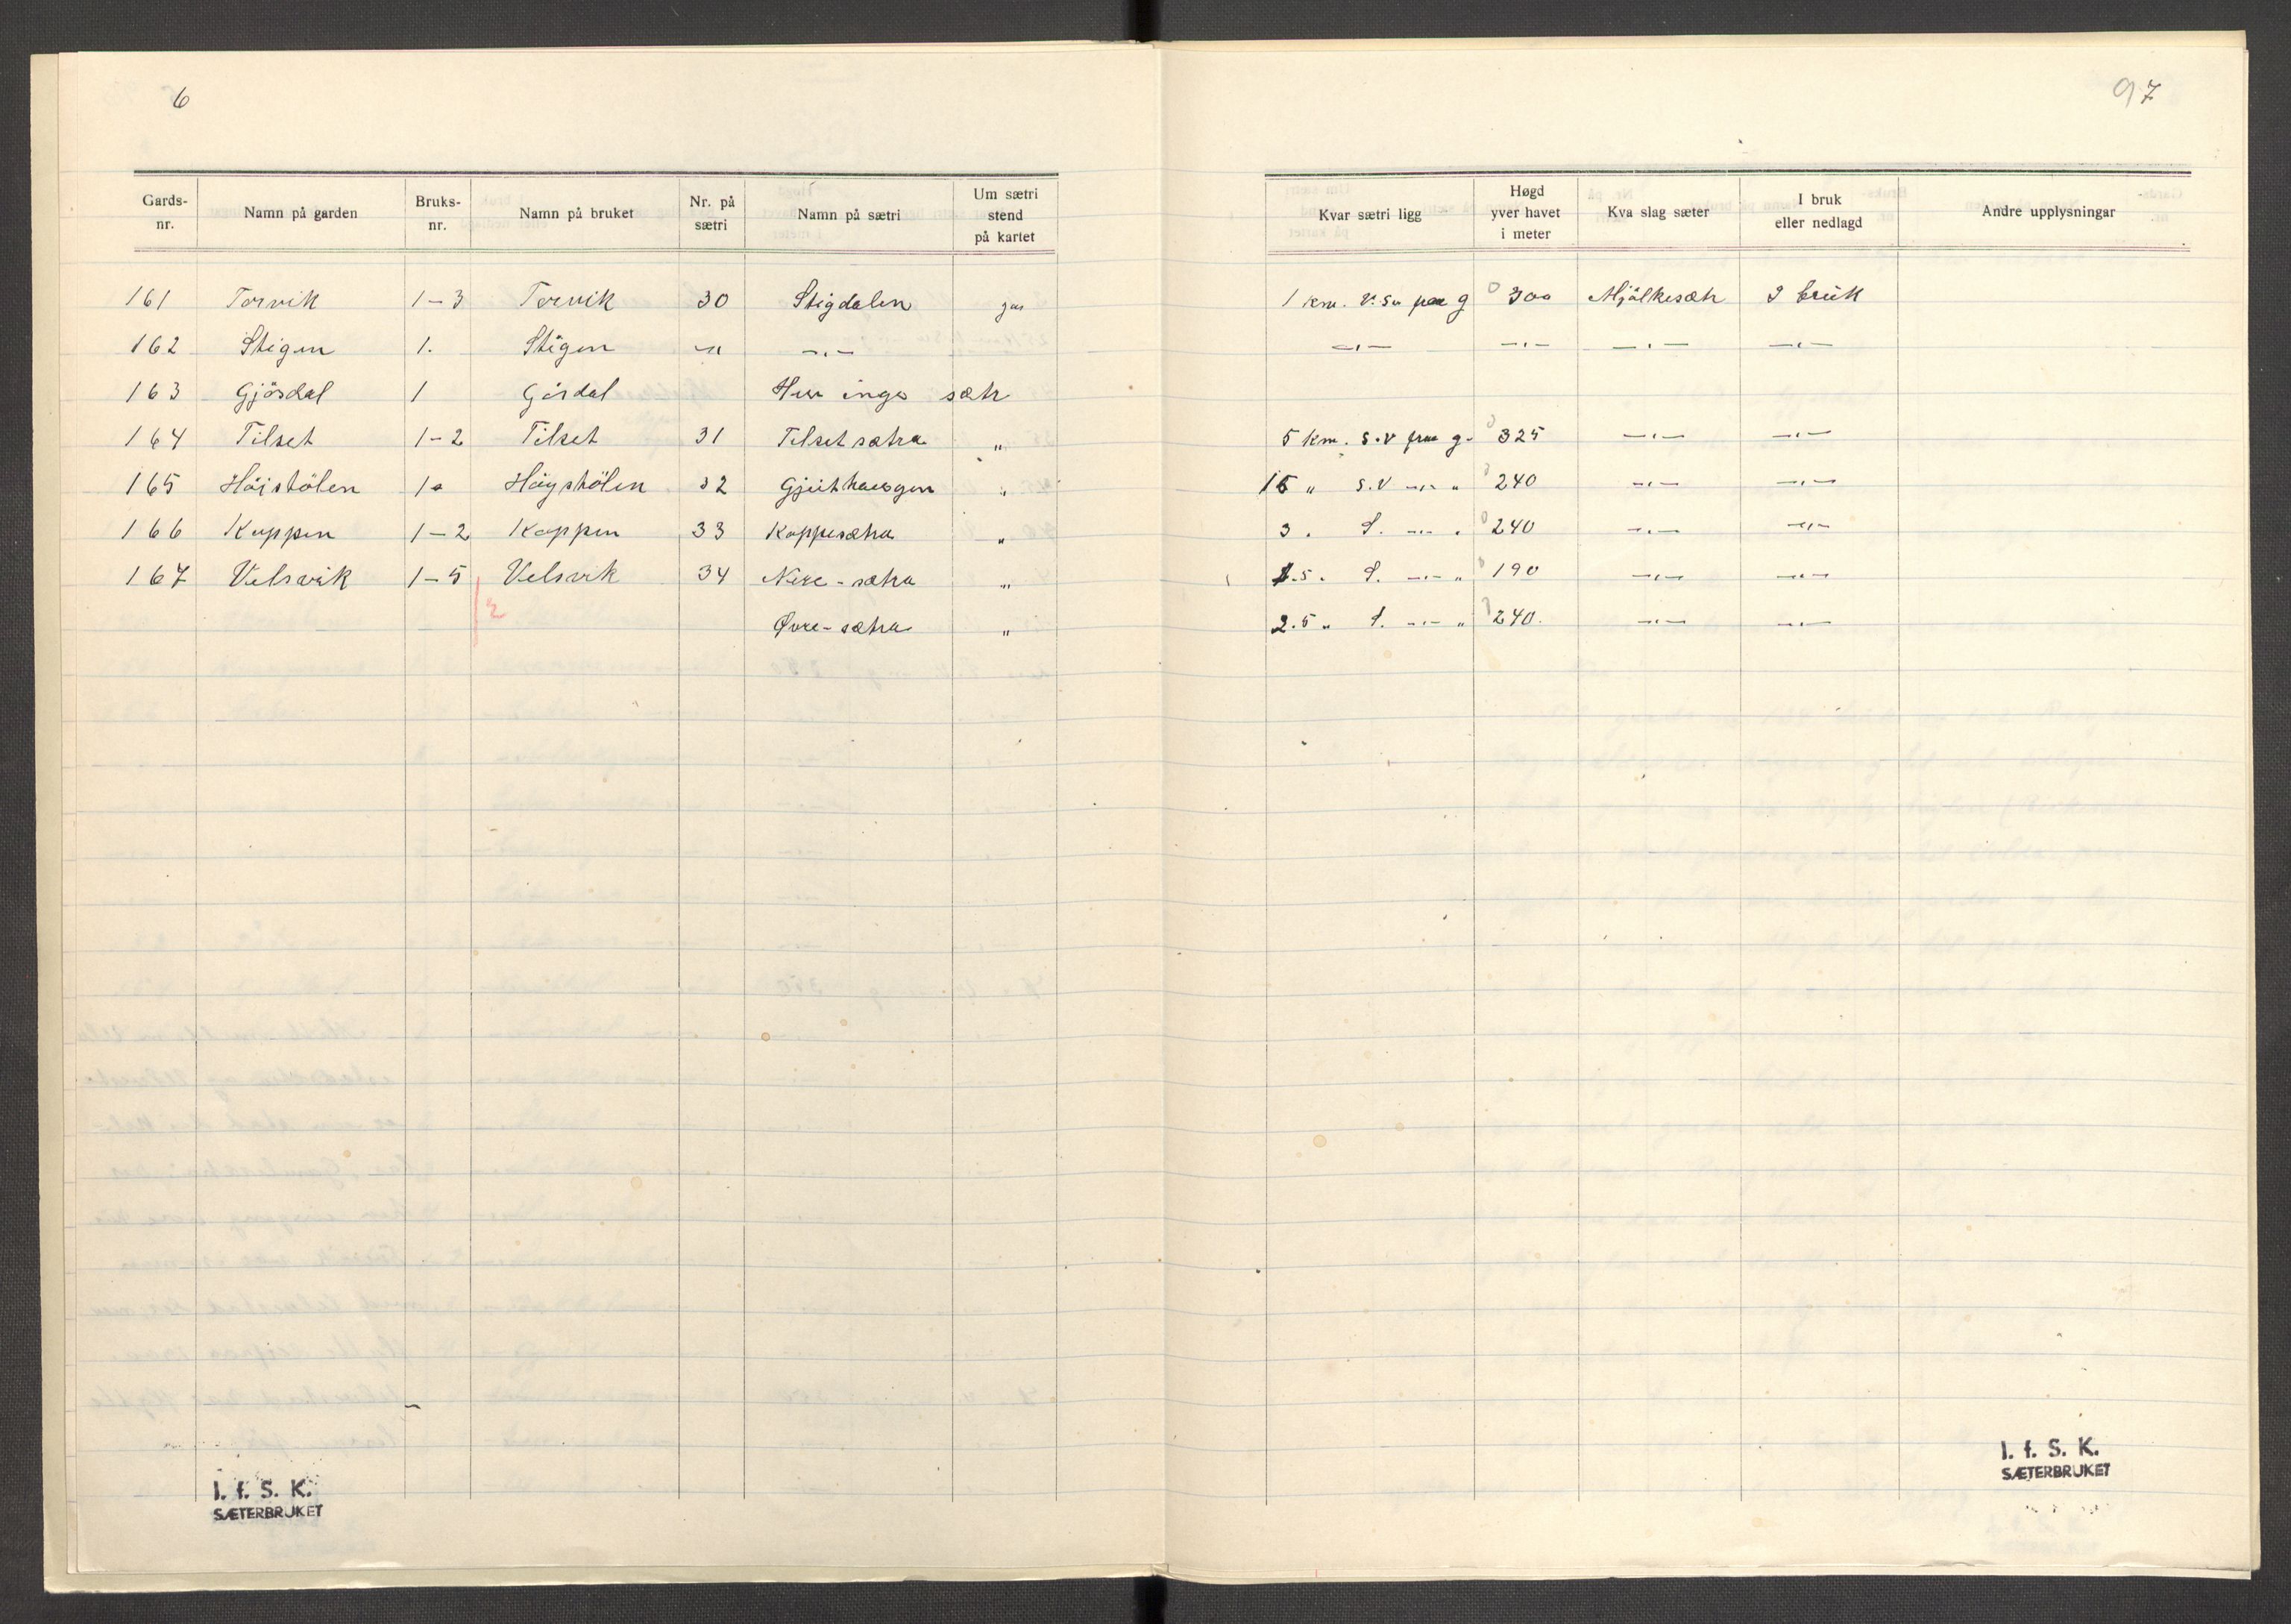 6
97
Gards-nr. Namn på garden Bruks-nr. Namn på bruket Nr. på sætri Namn på sætri Um sætri stend på kartet Kvar sætri ligg Høgd yver havet i meter Kva slag sæter I bruk eller nedlagd Andre upplysningar
161 Torvik 1-3 Torvik 30 Stigdalen jaa 1 km. v. 300 Mjölkesætr I bruk
162 Stigen 1. Stigen -"- -"- -"- -"- -"- -"-
163 Gjösdal 1 Hev inga sætr
164 Tilset 1-2 Tilset 31 Tilsetsætra " 5 km. s.v fraa g. 325 -"- -"-
165 Höistölen 1 Högstölen 32 Gjeithaugen " 15 " s.v -"- " 240 -"- -"-
166 Koppen 1-2 Koppen 33 Koppesætra " 3 " S. -"- " 240 -"- -"-
167 Velsvik 1-5 Velsvik 34 Nere-sætra " 1.5 " S. -"- " 190 -"- -"-
2 Øvre-sætra " 2.5 " S. -"- " 240. -"- -"-
I. f. S. K.
SÆTERBRUKET
I. f. S. K.
SÆTERBRUKET